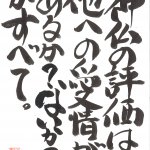 神仏の評価は
他への愛情が
あるか？ないか？
がすべて。